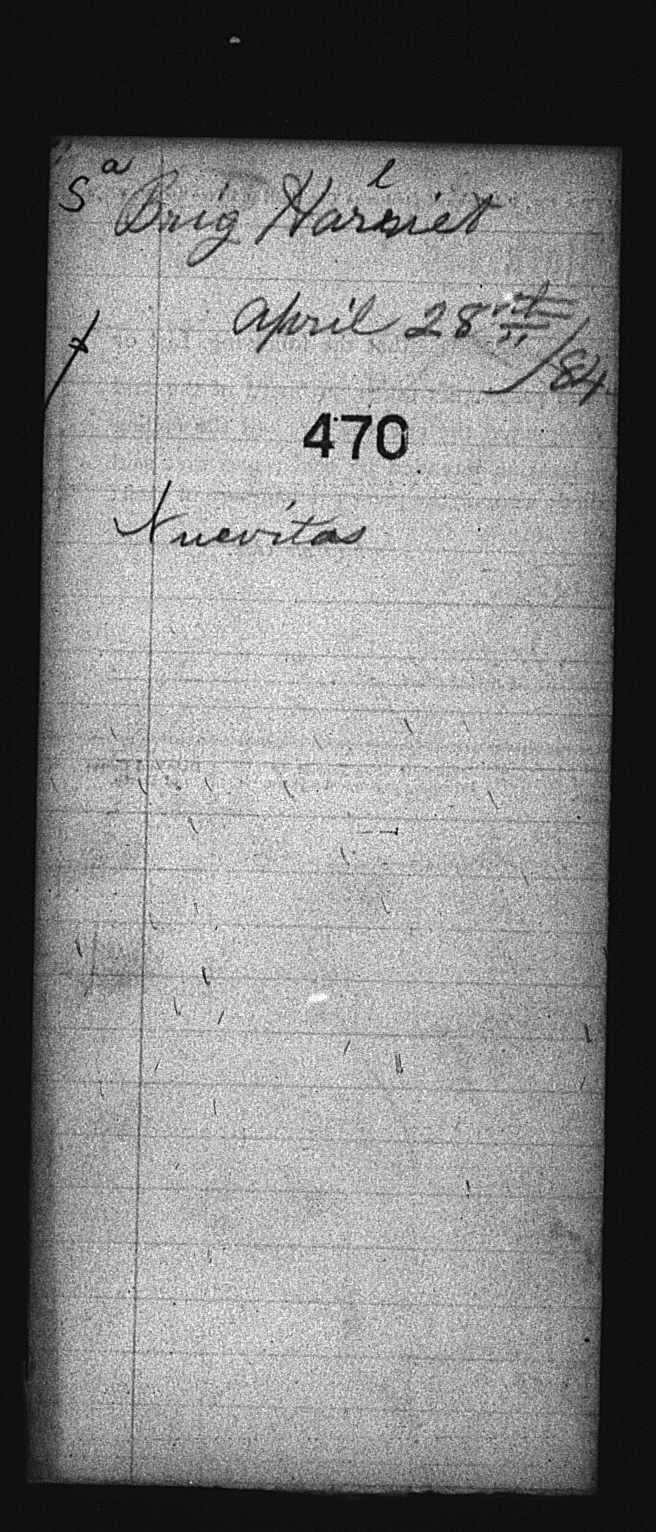 S a l
Brig Harriet
April 28th /84
470
Nuevitas